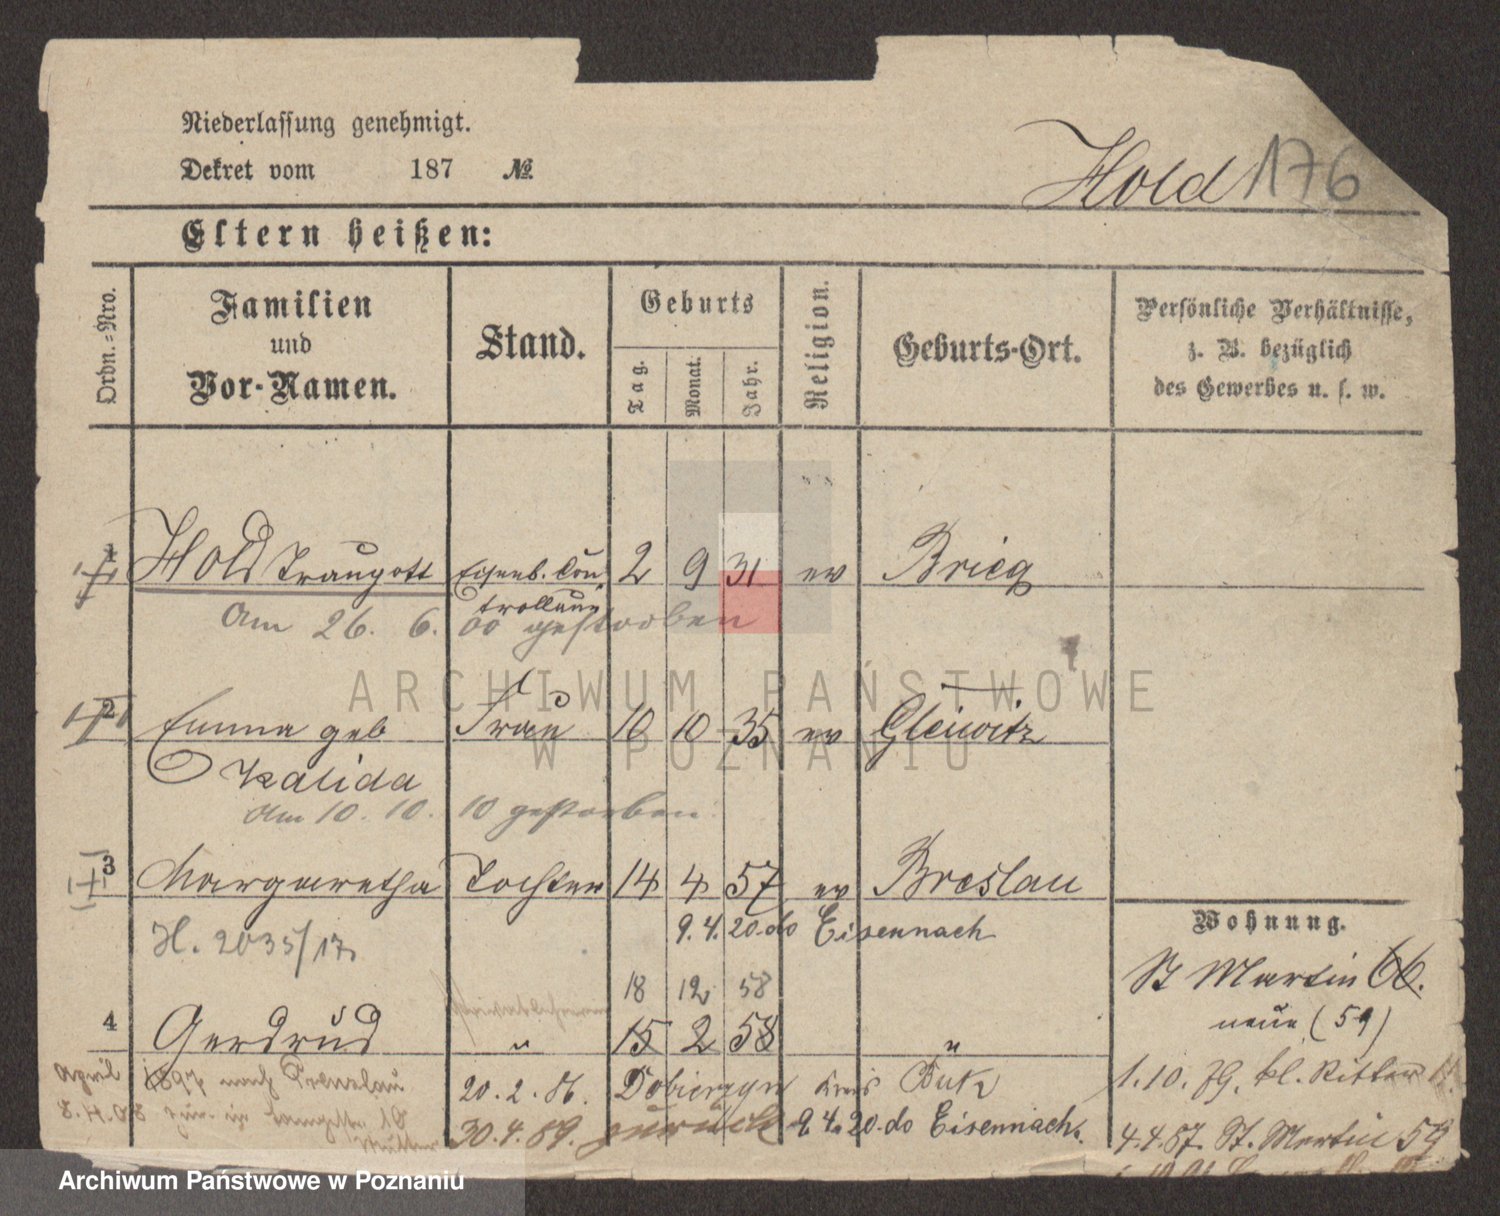 Niederlassung genehmigt.
Dekret vom 187 №
Hold 176
Eltern heißen:
Ordn.-Nro.
Familien
und
Vor-Namen.
Stand.
Geburts
Tag.
Monat.
Jahr.
Religion.
Geburts-Ort.
Persönliche Verhältnisse,
z. B. bezüglich
des Gewerbes u. s. w.
1 Hold Traugott Eisenb. Con 2 9 31 ev Brieg
trolleur
Am 26. 6. 00 gestorben
ARCHIWUM PAŃSTWOWE
W POZNANIU
2 Emma geb Frau 10 10 35 ev Gleiwitz
Kalida
Am 10. 10. 10 gestorben.
3 Margaretha Tochter 14 4 57 ev Breslau
9. 4. 20. do Eisennach
H. 2035/17
Wohnung.
St Martin 66.
neue (59)
18 12 58
4 Gerdrud " 15 2 58 "
April 1897 nach Prenzlau
20. 2. 86. Dobierzyn Kreis Buk
1. 10. kl. Ritter
8. 4. 08 zur. in
30. 4. 89. zurück 9. 4. 20. do Eisennach.
4. 4. 87. St. Martin 59
Mutter
Archiwum Państwowe w Poznaniu